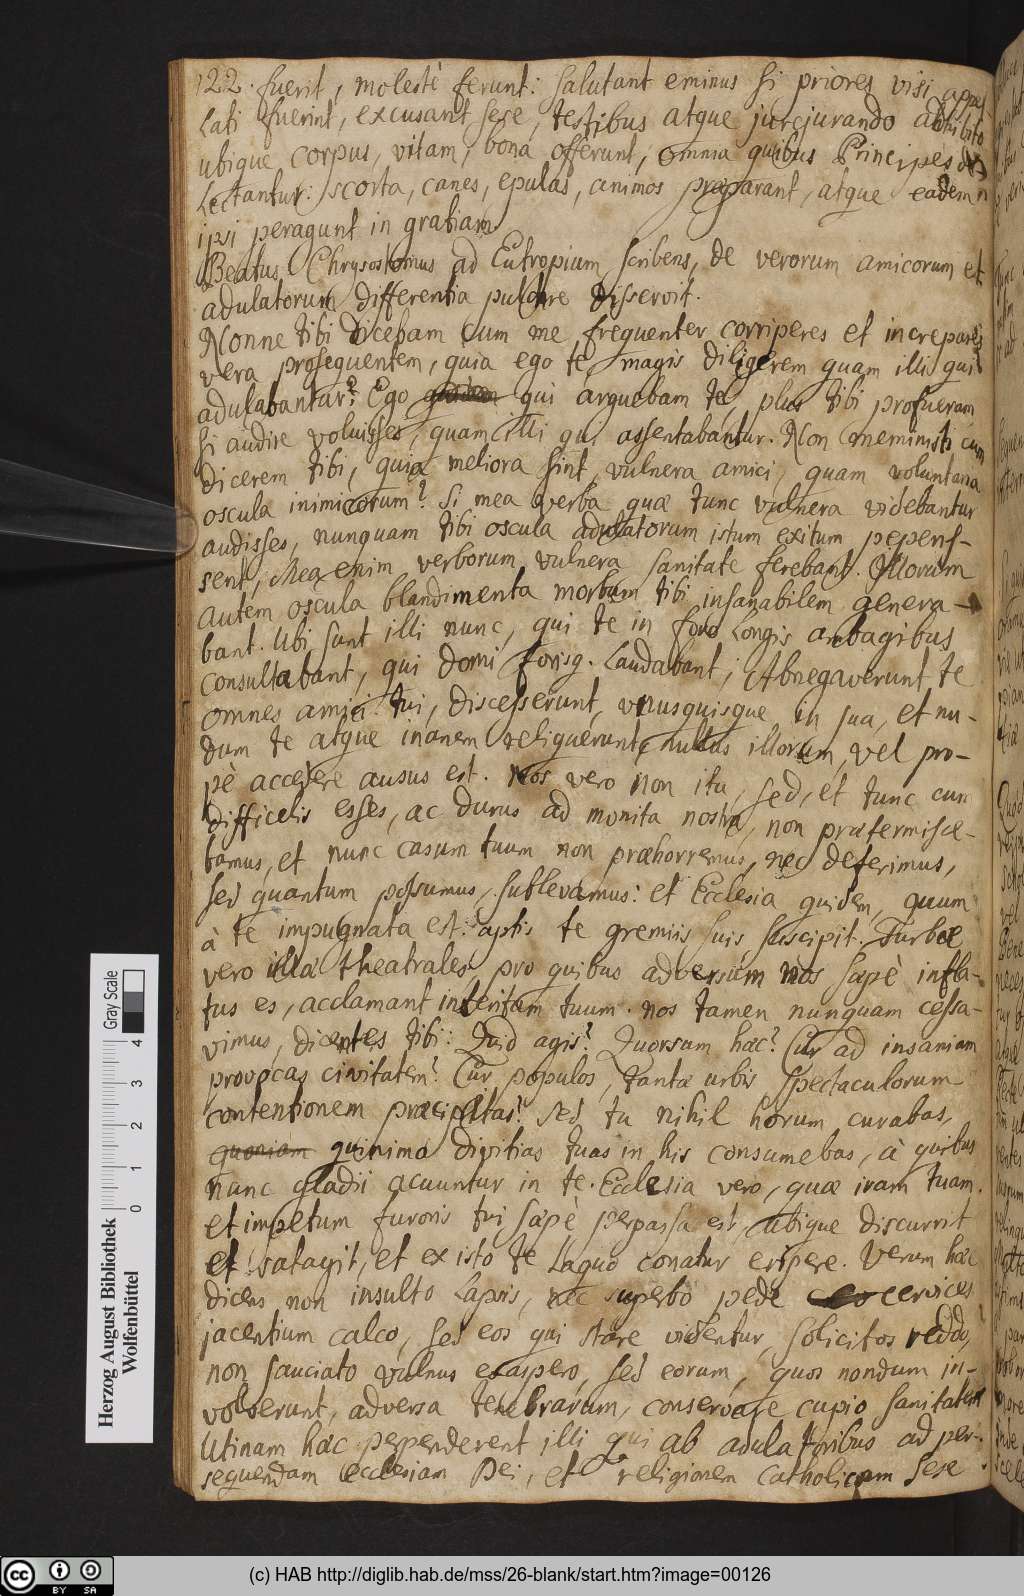 122. fuerit, molestè ferunt: salutant eminus si priores visi appel
lati fuerint, excusant sese, testibus atque jurejurando adhibito
ubique corpus, vitam, bona offerunt, omnia quibus Principes de-
lectantur: scorta, canes, epulas, animos præparant, atque eadem
ipsi peragunt in gratiam
Beatus Chrysostomus ad Eutropium scribens, de verorum amicorum et
adulatorum differentia pulchre disseroit.
Nonne tibi dicebam cum me frequenter corriperes et increpares
vera prosequentem, quia ego te magis diligerem quam illi qui
adulabantur? Ego qui arguebam te, plus tibi profueram
si audire voluisses, quam illi qui assentabantur. Non meministi cum
dicerem tibi, quia meliora sint vulnera amici, quam voluntaria
oscula inimicorum? Si mea verba quæ tunc vulnera videbantur
audisses, nunquam tibi oscula adulatorum istum exitum peperis-
sent, Mea enim verborum vulnera sanitate ferebant. Illorum
autem oscula blandimenta morbum tibi insanabilem genera-
bant. Ubi sunt illi nunc, qui te in foro longis ambagibus
consultabant, qui domi forisq. laudabant; Abnegaverunt te
omnes amici tui, discesserunt, unusquisque in sua, et nu-
dum te atque inanem reliquerunt, nullus illorum, vel pro-
pè accedere ausus est. Nos vero non ita, sed, et tunc cum
difficilis esses, ac durus ad monita nostra, non prætermisce-
bamus, et nunc casum tuum non præhorremus, nec deferimus,
sed quantum possumus, sublevamus: et Ecclesia quidem, quum
à te impugnata est: aptis te gremiis suis suscipit. Turbæ
vero illæ theatrales, pro quibus adversum nos sæpè infla-
tus es, acclamant interitum tuum. nos tamen nunquam cessa-
vimus, dicentes tibi: Quid agis? Quorsum hæc? Cur ad insaniam
provocas civitatem? Cur populos, tantæ urbis spectaculorum
contentionem præcipitas? sed tu nihil horum curabas,
quoniam quinimo divitias tuas in his consumebas, à quibus
nunc gladii acuuntur in te. Ecclesia vero, quæ iram tuam.
et impetum furoris tui sæpè perpassa est, ubique discurrit
et satagit, et ex isto te laqueo conatur eripere. Verum hæc
dicens non insulto lapsis, nec superbo pede cervices
jacentium calco, sed eos qui stare videntur, solicitos reddo,
non sauciato vulnus exaspero, sed eorum, quos nondum in-
volverunt, adversa tenebrarum, conservare cupio sanitatem
Utinam hæc perpenderent illi qui ab adulatoribus ad per-
sequendam Ecclesiam Dei, et religionem catholicam sese
Herzog August Bibliothek
Wolfenbüttel
0 1 2 3 4
Gray Scale
cc BY SA
(c) HAB http://diglib.hab.de/mss/26-blank/start.htm?image=00126